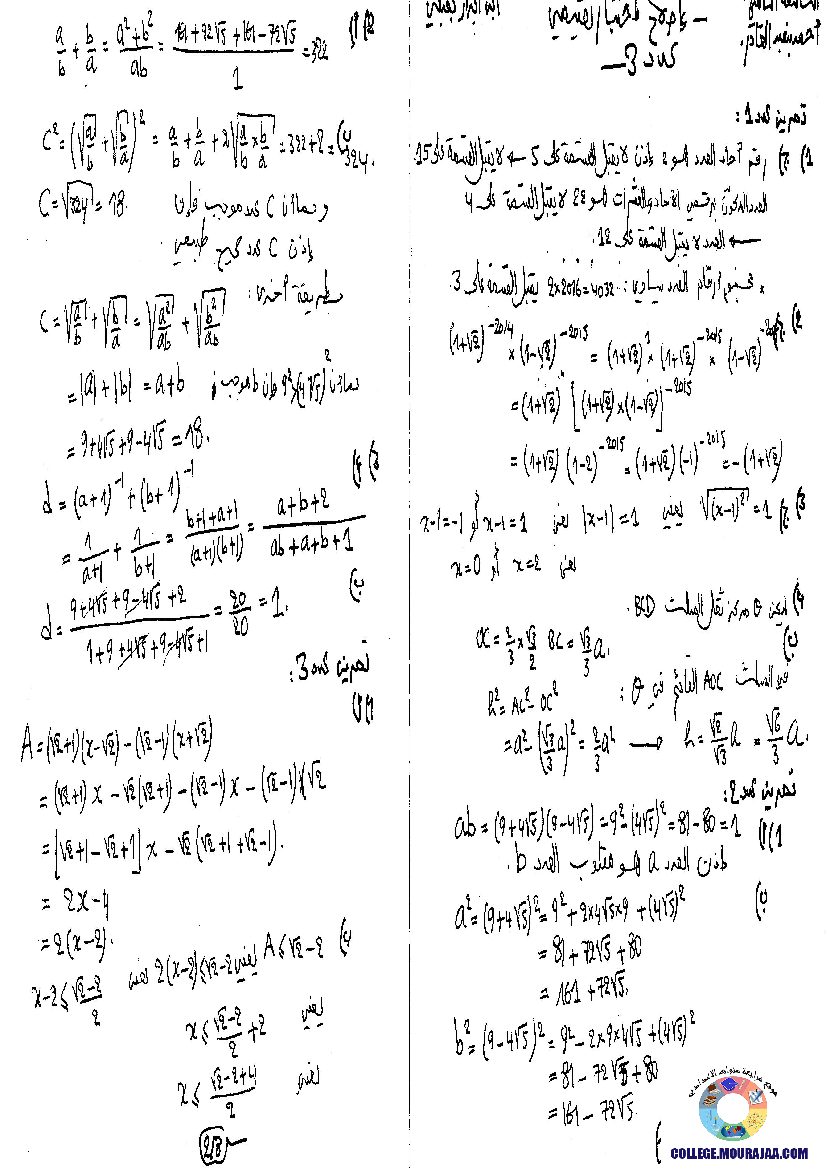 أحمد بلقاسم
إصلاح
عدد 3
تمرين عدد 1:
1) ج) رقم آحاد العدد هو 2 إذن لا يقبل القسمة على 5 ← لا يقبل القسمة على 15.
رقمي الآحاد والعشرات هو 22 لا يقبل القسمة على 4
← العدد لا يقبل القسمة على 12.
× مجموع أرقام العدد يساوي: 2×2016=4032 يقبل القسمة على 3.
2) (1+√2)^-2014 × (1-√2)^-2015 = (1+√2)^1 × (1+√2)^-2015 × (1-√2)^-2015
= (1+√2)[(1+√2)×(1-√2)]^-2015
= (1+√2)(1-2)^-2015 = (1+√2)(-1)^-2015 = -(1+√2)
3) ج) √(x-1)² = 1 يعني |x-1| = 1 يعني x-1=1 أو x-1=-1
يعني x=2 أو x=0
4) ليكن O مركز ثقل المثلث BCD.
ب) OC = 2/3 × √3/2 BC = √3/3 a.
في المثلث AOC القائم في O:
h² = AC² - OC²
= a² - (√3/3 a)² = 2/3 a² → h = √2/√3 a = √6/3 a.
تمرين عدد 2:
1) أ) ab = (9+4√5)(9-4√5) = 9² - (4√5)² = 81-80 = 1
إذن العدد a هو مقلوب العدد b.
ب) a² = (9+4√5)² = 9² + 2×4√5×9 + (4√5)²
= 81 + 72√5 + 80
= 161 + 72√5.
b² = (9-4√5)² = 9² - 2×9×4√5 + (4√5)²
= 81 - 72√5 + 80
= 161 - 72√5.
موقع مراجعة
COLLEGE.MOURAJAA.COM
2) أ) a/b + b/a = (a²+b²)/ab = (161+72√5+161-72√5)/1 = 322
ب) C² = (√(a/b) + √(b/a))² = a/b + b/a + 2√(a/b × b/a) = 322+2 = 324.
وبما أن C عدد موجب فإن C = √324 = 18.
إذن C عدد صحيح طبيعي
طريقة أخرى:
C = √(a/b) + √(b/a) = √(a²/ab) + √(b²/ab)
= |a| + |b| = a+b
بما أن 9² > (4√5)² فإن b موجب
= 9+4√5+9-4√5 = 18.
3) أ) d = (a+1)^-1 + (b+1)^-1
= 1/(a+1) + 1/(b+1) = (b+1+a+1)/((a+1)(b+1)) = (a+b+2)/(ab+a+b+1)
ب) d = (9+4√5+9-4√5+2)/(1+9+4√5+9-4√5+1) = 20/20 = 1.
تمرين عدد 3:
1) أ)
A = (√2+1)(x-√2) - (√2-1)(x+√2)
= (√2+1)x - √2(√2+1) - (√2-1)x - (√2-1)√2
= [√2+1-√2+1]x - √2(√2+1+√2-1).
= 2x-4
= 2(x-2).
ب) A ≤ √2-2 يعني 2(x-2) ≤ √2-2 يعني x-2 ≤ (√2-2)/2
يعني x ≤ (√2-2)/2 + 2
يعني x ≤ (√2-2+4)/2